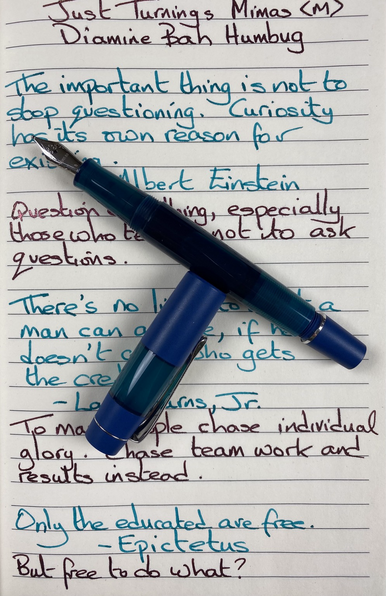 Just Turnings Mimas <M>
Diamine Bah Humbug
The important thing is not to
stop questioning. Curiosity
has its own reason for
Albert Einstein
Question thing, especially
those who not to ask
questions.
There's no a
man can if
doesn't who gets
the
Jr.
To chase individual
glory. Chase team work and
results instead.
Only the educated are free.
- Epictetus
But free to do what?